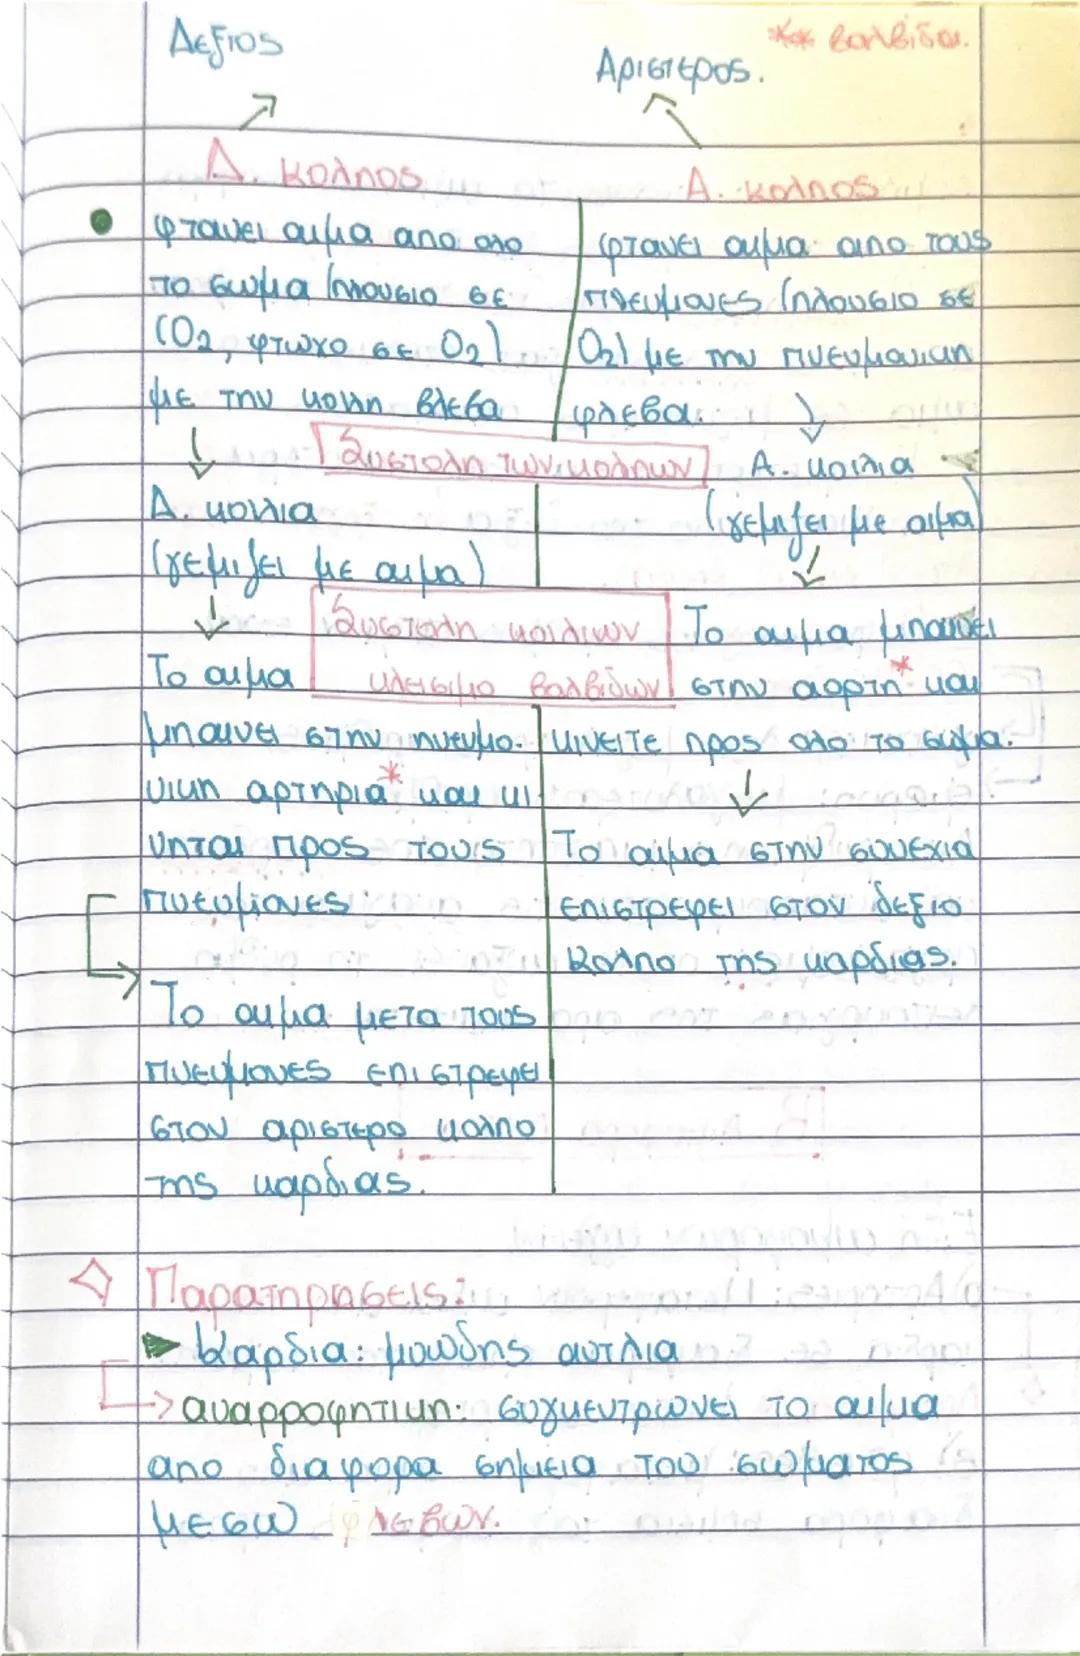 Δεξιος
** βαλβίδα.
Αριστερος.
Δ. κολπος
Α. κολπος
φτανει αιμα απο ολο
το σωμα (πλουσιο σε
CO2, φτωχο σε O2)
με την κοιλη βλεβα
φτανει αιμα απο τους
πνευμονες (πλουσιο σε
O2) με την πνευμονικη
φλεβα.
Συστολη των κολπων
Δ. κοιλια
(γεμιζει με αιμα)
Α. κοιλια
(γεμιζει με αιμα)
Συστολη κοιλιων
κλεισιμο βαλβιδων
Το αιμα
μπαινει στην πνευμο-
νικη αρτηρια* και κι-
νηται προς τους
πνευμονες
Το αιμα μετα τους
πνευμονες επιστρεφει
στον αριστερο κολπο
της καρδιας.
Το αιμα μπαινει
στην αορτη* και
κινειτε προς ολο το σωμα.
Το αιμα στην συνεχια
επιστρεφει στον δεξιο
κολπο της καρδιας.
Παρατηρησεις:
Καρδια: μυωδης αντλια
αναρροφητικη: συγκεντρωνει το αιμα
απο διαφορα σημεια του σωματος
μεσω φλεβων.